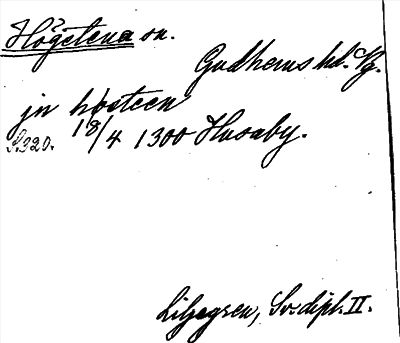 Högstena sn.
Gudhems hd. Vg.
jn høsteen
S.320. 18/4 1300 Husaby.
Liljegren, Sv. dipl. II.